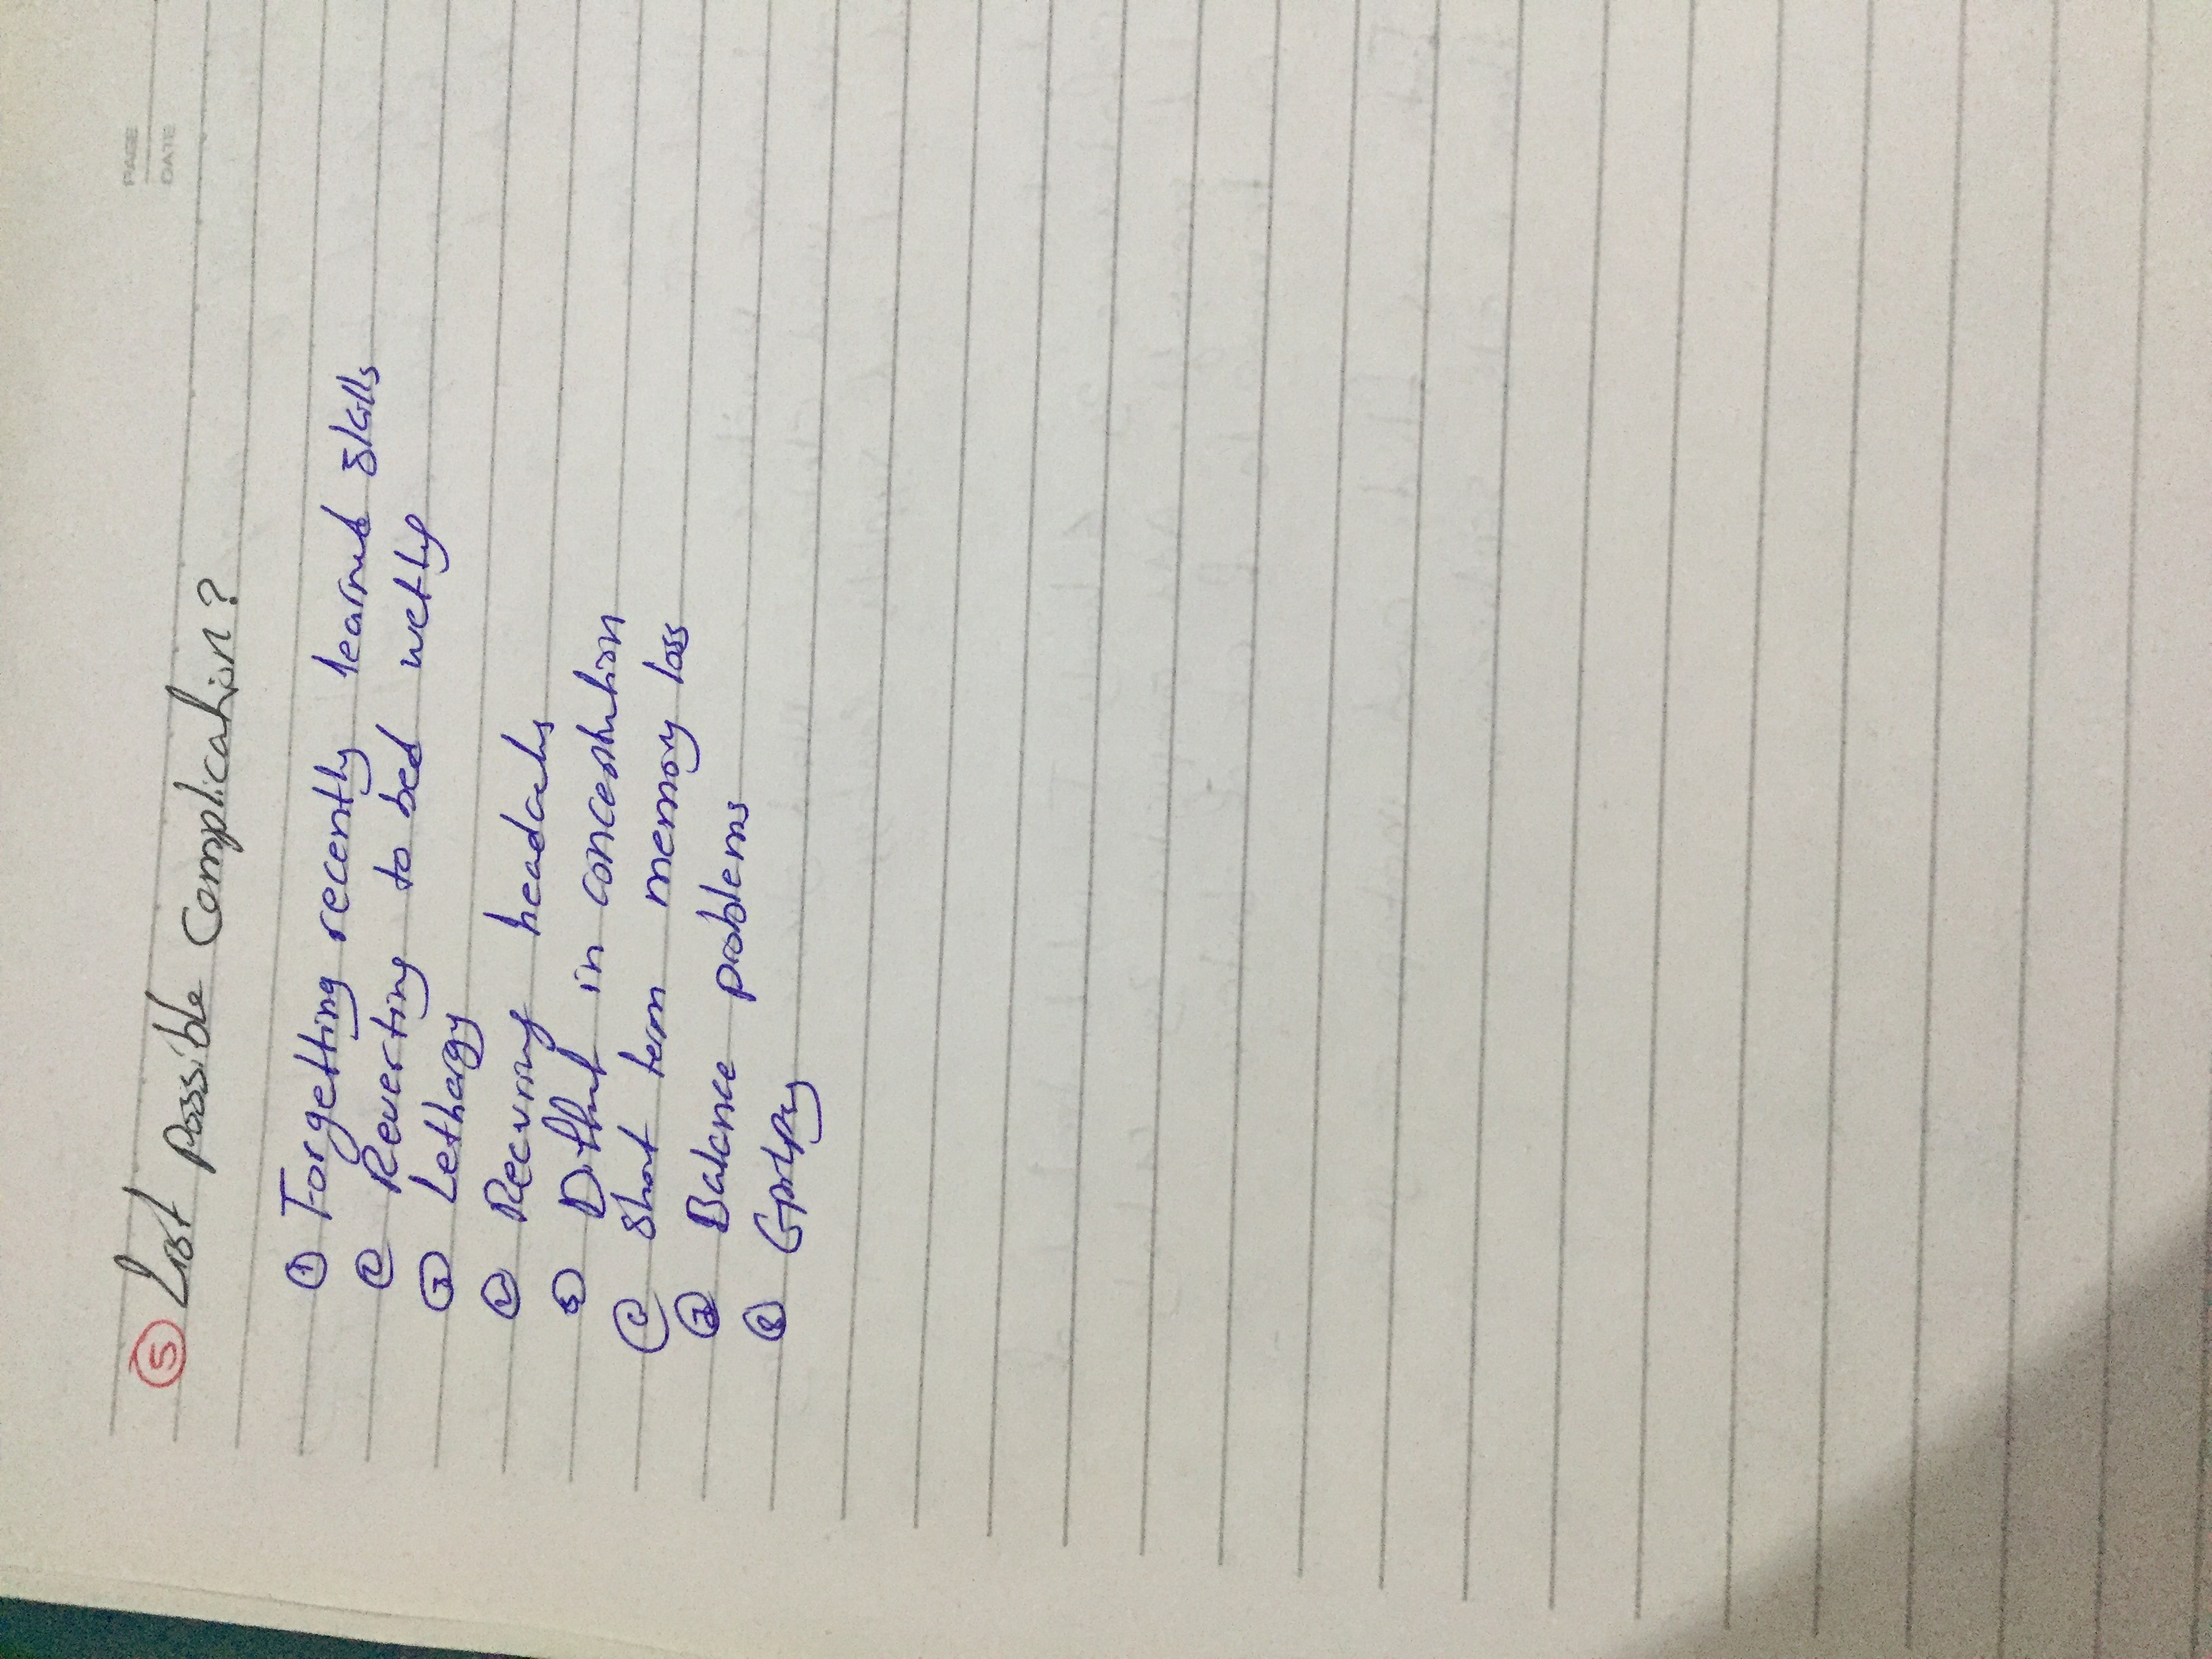 PAGE
DATE
⑤ List possible Complication?
① Forgetting recently learned skills
② Reverting to bed wetty
③ Lethargy
④ Recurring headachs
⑤ in concentration
⑥ short term memory loss
⑦ Balance problems
⑧